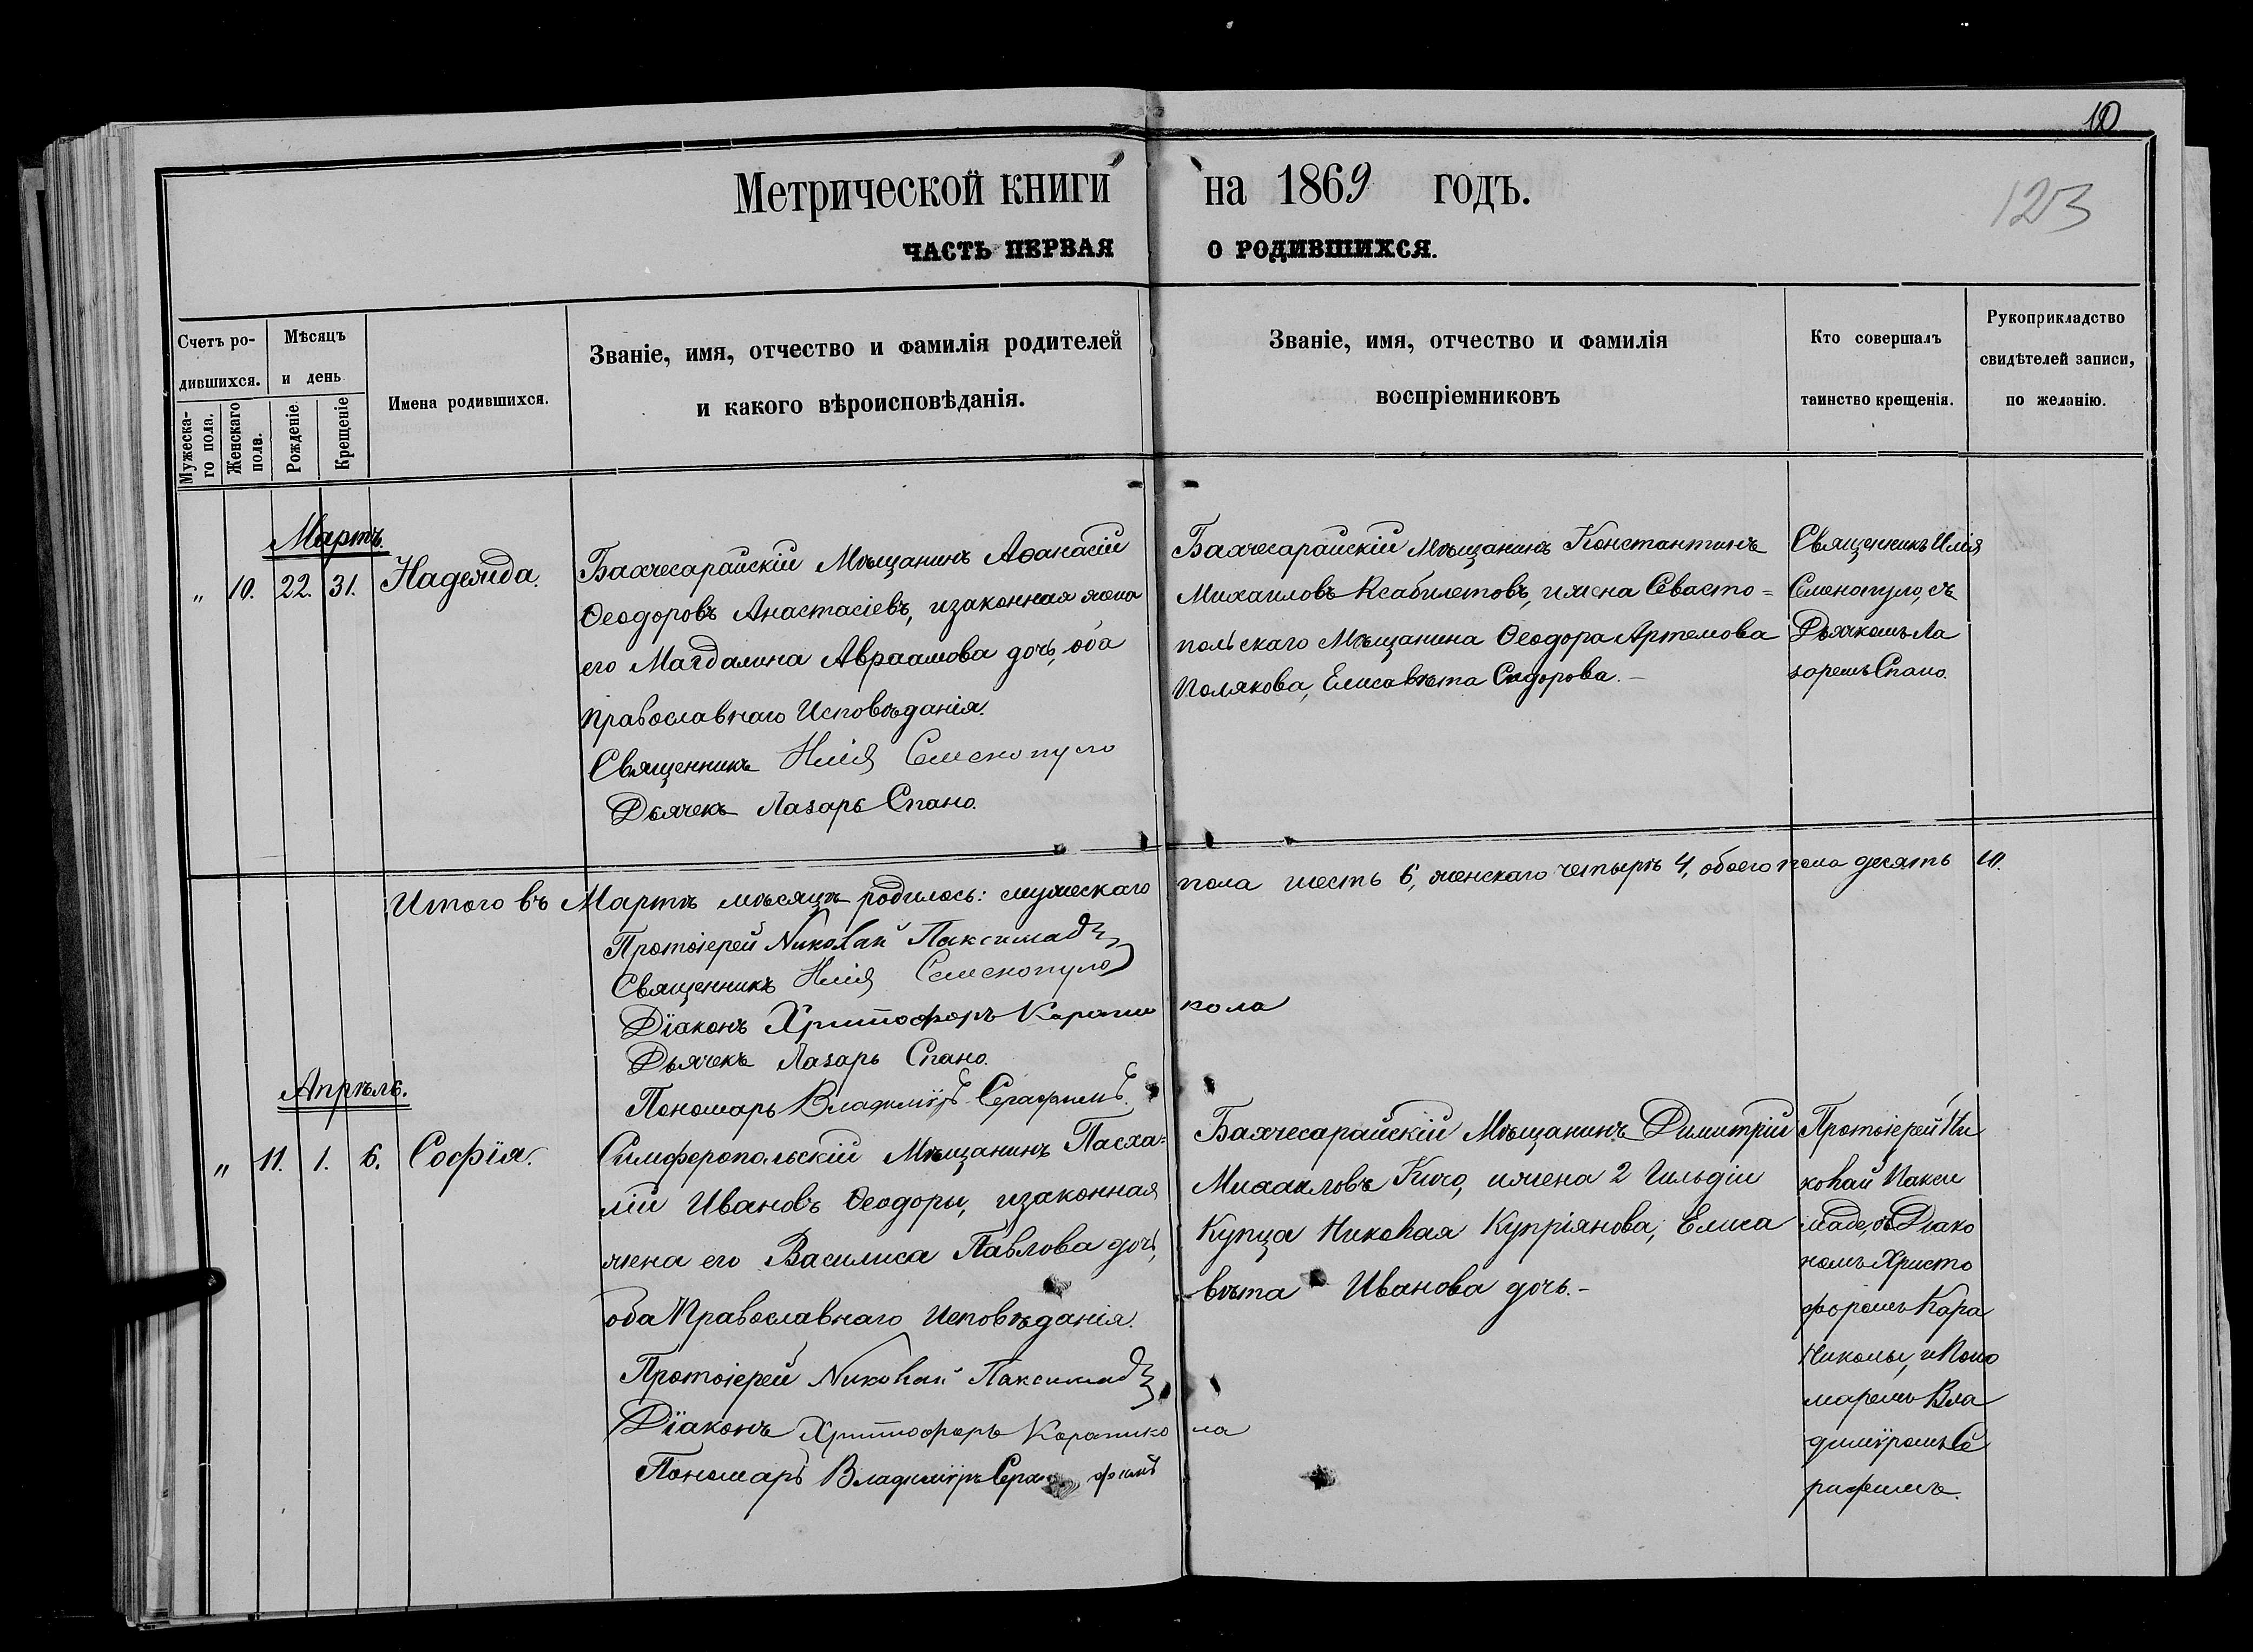 10
123
Метрической книги на 1869 годъ.
ЧАСТЬ ПЕРВАЯ О РОДИВШИХСЯ.
Счетъ ро-
дившихся.
Мужеска-
го пола.
Женскаго
пола.
Мѣсяцъ
и день
Рожденіе.
Крещеніе
Имена родившихся.
Званіе, имя, отчество и фамилія родителей
и какого вѣроисповѣданія.
Званіе, имя, отчество и фамилія
воспріемниковъ
Кто совершалъ
таинство крещенія.
Рукоприкладство
свидѣтелей записи,
по желанію.
Мартъ.
„ 10. 22. 31. Надежда.
Бахчесарайскій Мѣщанинъ Аѳанасій
Ѳеодоровъ Анастасіевъ, и законная жена
его Магдалина Авраамова дочь, оба
Православнаго Исповѣданія.
Священникъ Илія Семенопуло
Дьячекъ Лазарь Спано.
Бахчесарайскій Мѣщанинъ Константинъ
Михаиловъ Ксабилетовъ, и жена Севасто=
польскаго Мѣщанина Ѳеодора Артемова
Полякова, Елисавѣта Сидорова.-
Священникъ Илія
Семенопуло, съ
Дьячкомъ Ла
заремъ Спано.
Итого въ Мартѣ мѣсяцѣ родилось: мужескаго пола шесть 6, женскаго четыре 4, обоего пола десять 10.
Протоіерей Николай Паксимад
Священникъ Илія Семенопуло
Діаконъ Христофоръ Карани кола
Дьячекъ Лазарь Спано.
Пономарь Владиміръ Серафимъ.
Апрѣль.
„ 11. 1. 6. Софія.
Симферопольскій Мѣщанинъ Пасха=
лій Ивановъ Ѳеодоры, и законная
жена его Василиса Павлова дочь,
оба Православнаго Исповѣданія.
Протоіерей Николай Паксимад
Діаконъ Христофоръ Каранико ла
Пономарь Владиміръ Сера фимъ
Бахчесарайскій Мѣщанинъ Димитрій
Михаиловъ Кичо, и жена 2 Гильдіи
Купца Николая Купріянова, Елиса
вѣта Иванова дочь.-
Протоіерей Ни
колай Пакси
маде, съ Діако
номъ Христо
форомъ Кара
Николы, и Поно
маремъ Вла
диміромъ Се
рафимъ.